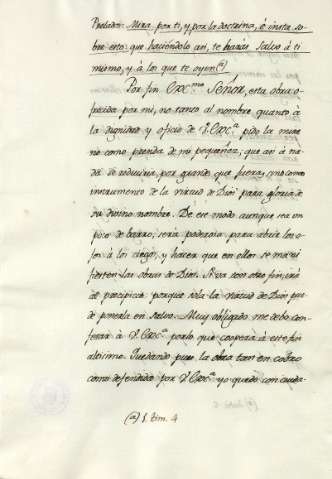 Prelador: Mira por ti, y por la doctrina, é insta so-
bre esto: que haciéndolo asi, te harás salvo á ti
mismo, y á los que te oyen (a)
Por fin Exc.mo Señor, esta obra o-
frecida por mi, no tanto al nombre, quanto á
la dignidad y oficio de V. Exc.a pido la mire
no como prenda de mi pequeñez, que asi á na-
da se reduciria, por grande que fuera; sino como
instrumento de la virtud de Dios para gloria de
su divino nombre. De ese modo aunque sea un
poco de barro, sería poderosa para abrir los o-
jos á los ciegos, y hacer que en ellos se mani-
fiesten las obras de Dios. Si va con otro fin, irá
al precipicio porque sola la virtud de Dios pue-
de ponerla en salvo. Muy obligado me debo con-
fesar á V. Exc.a por lo que coopera á este fin
altisimo. Quedando pues la obra tan en cobro
como defendida por V. Exc.a yo quedo con cuida-
(a) 1. Tim. 4